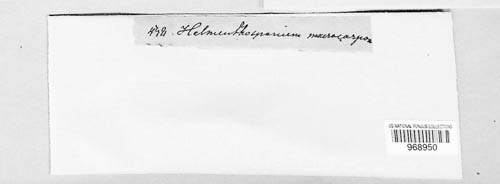 Helminthosporium macrocarpon
US NATIONAL FUNGUS COLLECTIONS
968950